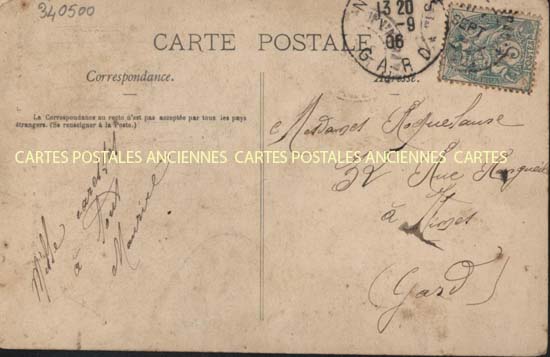 340500
CARTE POSTALE
Correspondance.
Adresse.
La Correspondance au recto n'est pas acceptée par tous les pays
étrangers. (Se renseigner à la Poste.)
13 20
-9
06
GARD
SEPT
CARTES POSTALES ANCIENNES CARTES POSTALES ANCIENNES CARTES
Mille caresses
à Tous
Maurice
Mesdames Roquelaure
32 Rue
à Nimes
(Gard)